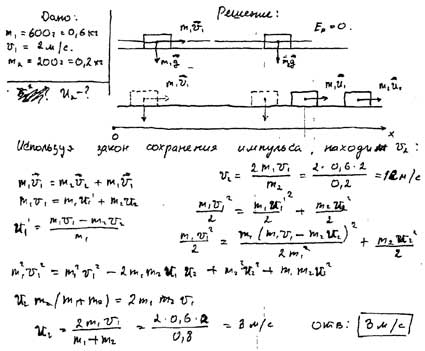 Дано:
m₁ = 600г = 0,6 кг
v₁ = 2 м/с.
m₂ = 200г = 0,2 кг
u₂ - ?
Решение:
m₁v⃗₁
Eₚ = 0.
m₁g⃗
m₁v⃗₁ m₁u⃗₁ m₂u⃗₂
0 x
Используя закон сохранения импульса, находим v₂:
v₂ = 2m₁v₁/m₂ = 2·0,6·2/0,2 = 12 м/с
m₁v⃗₁ = m₂v⃗₂ + m₁v⃗₁
m₁v₁ = m₁u₁' + m₂u₂
u₁' = (m₁v₁ - m₂v₂)/m₁
m₁v₁²/2 = m₁u₁'²/2 + m₂u₂²/2
m₁v₁²/2 = m₁(m₁v₁ - m₂u₂)²/2m₁² + m₂u₂²/2
m₁²v₁² = m₁²v₁² - 2m₁m₂u₁u₂ + m₂²u₂² + m₁m₂u²
u₂m₂(m₁+m₂) = 2m₁m₂v₁
u₂ = 2m₁v₁/(m₁+m₂) = 2·0,6·2/0,8 = 3 м/с
отв: 3 м/с